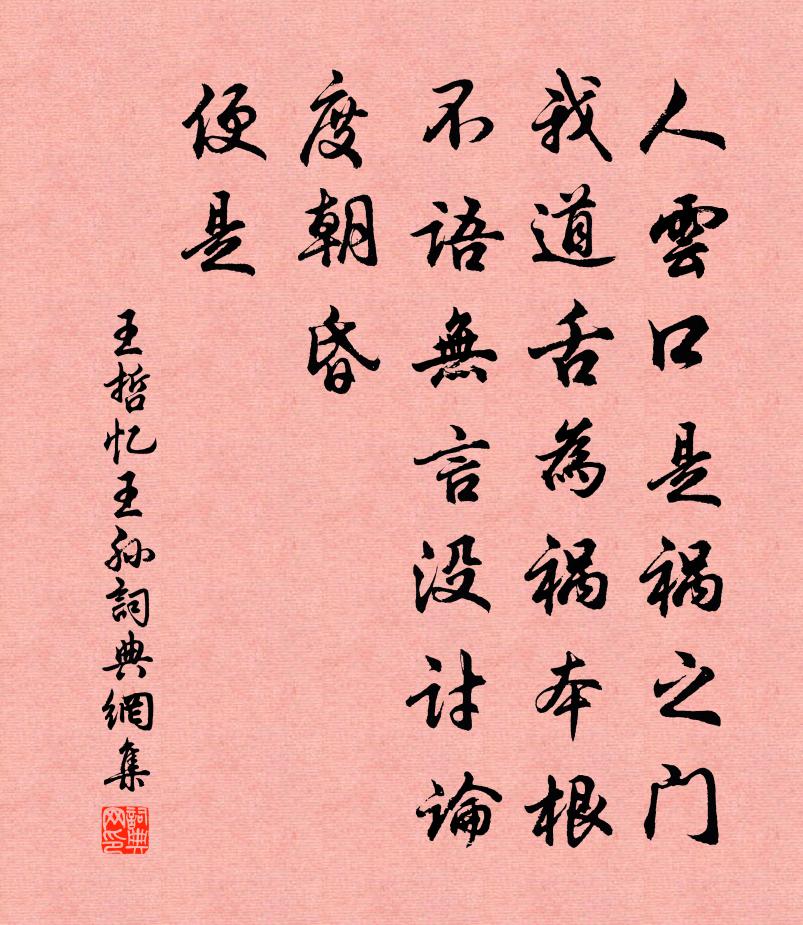 人雲口是祸之门
我道舌為祸本根
不語無言没討論
度朝昏
便是
王哲忆王孙詞典網集
詞典网印